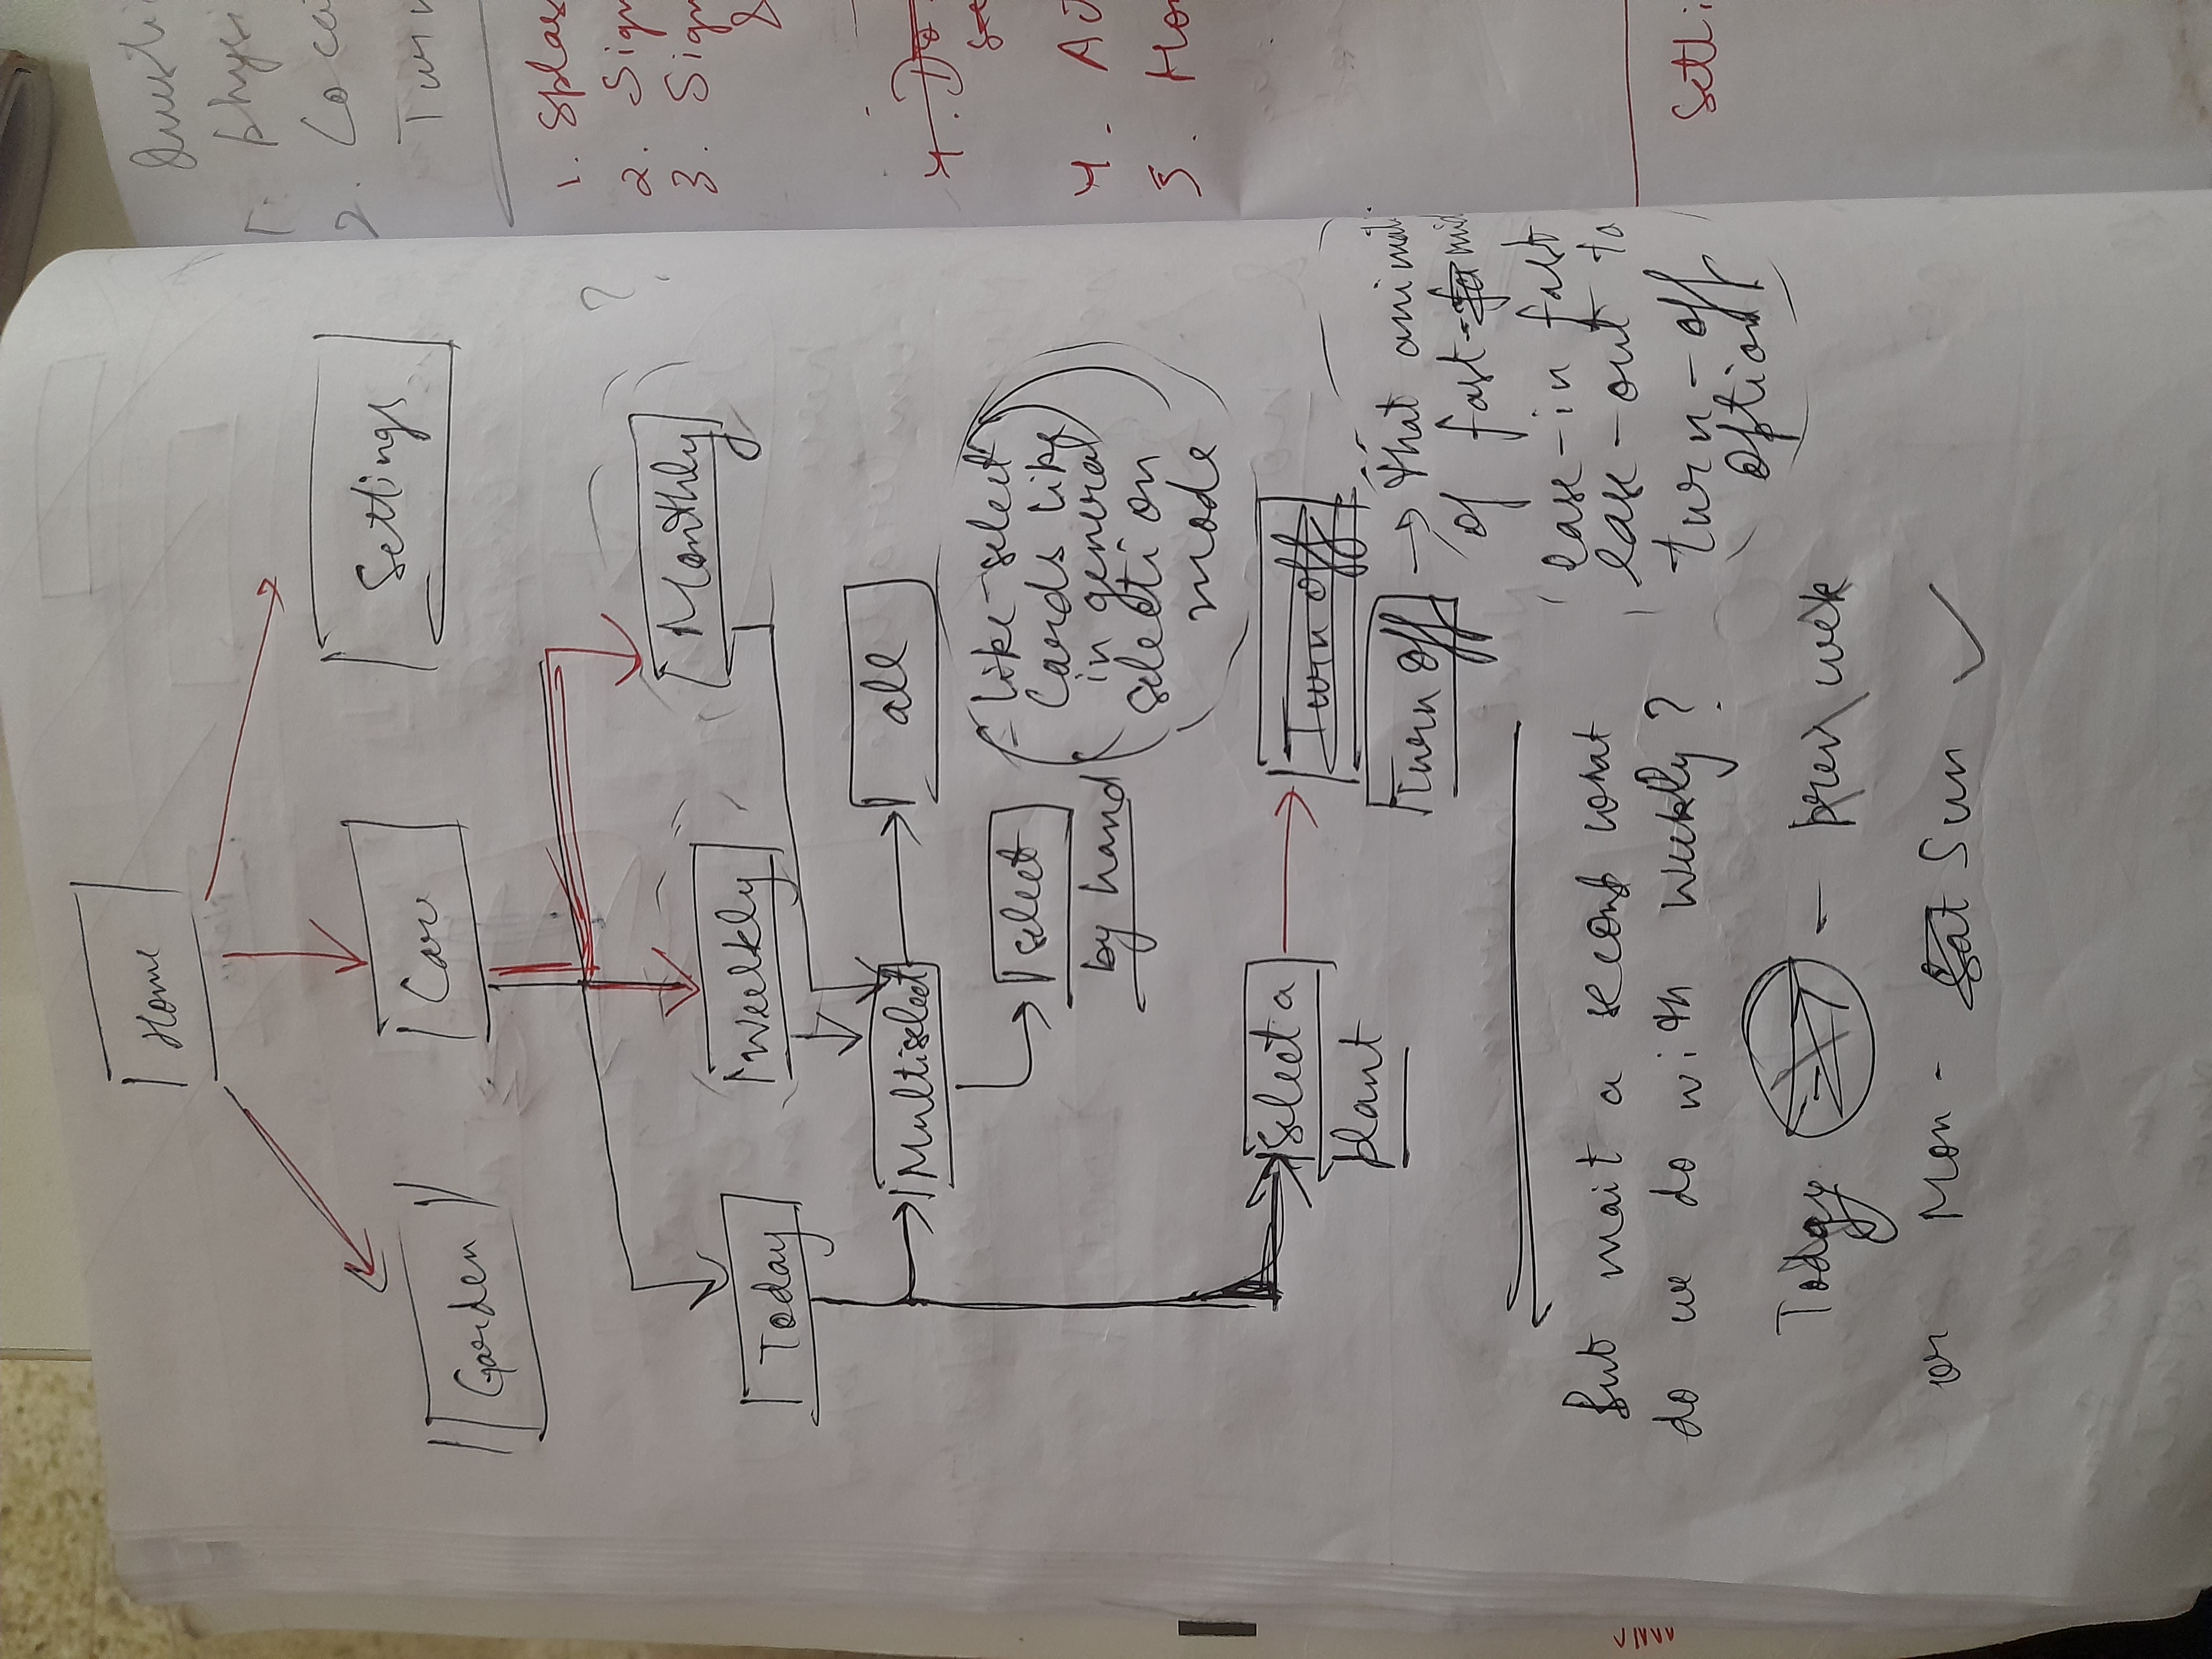 Home
Garden
Care
Settings
?
Today
Weekly
Monthly
Multiselect
all
select
by hand
like select
Cards like
in general
selection
mode
select a
plant
Turn off
Turn off
→ that animati
of fast - mid
ease-in fast
ease-out to
turn-off
option
But wait a second what
do we do with weekly?
Today - prev week
or Mon - Sat Sun ✓
Questi
1. Physi
2. Loca
Turn
1. Splas
2. Sign
3. Sign
&
4. Do
se
4. Ac
5. Ho
Setti